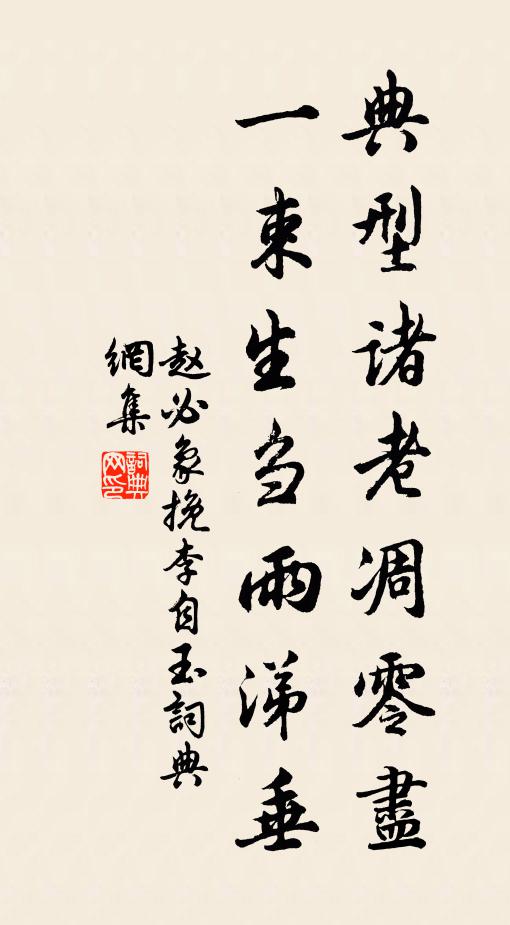 典型诸老凋零盡
一束生刍雨涕垂
赵必象挽李自玉詞典
網集
詞典网印